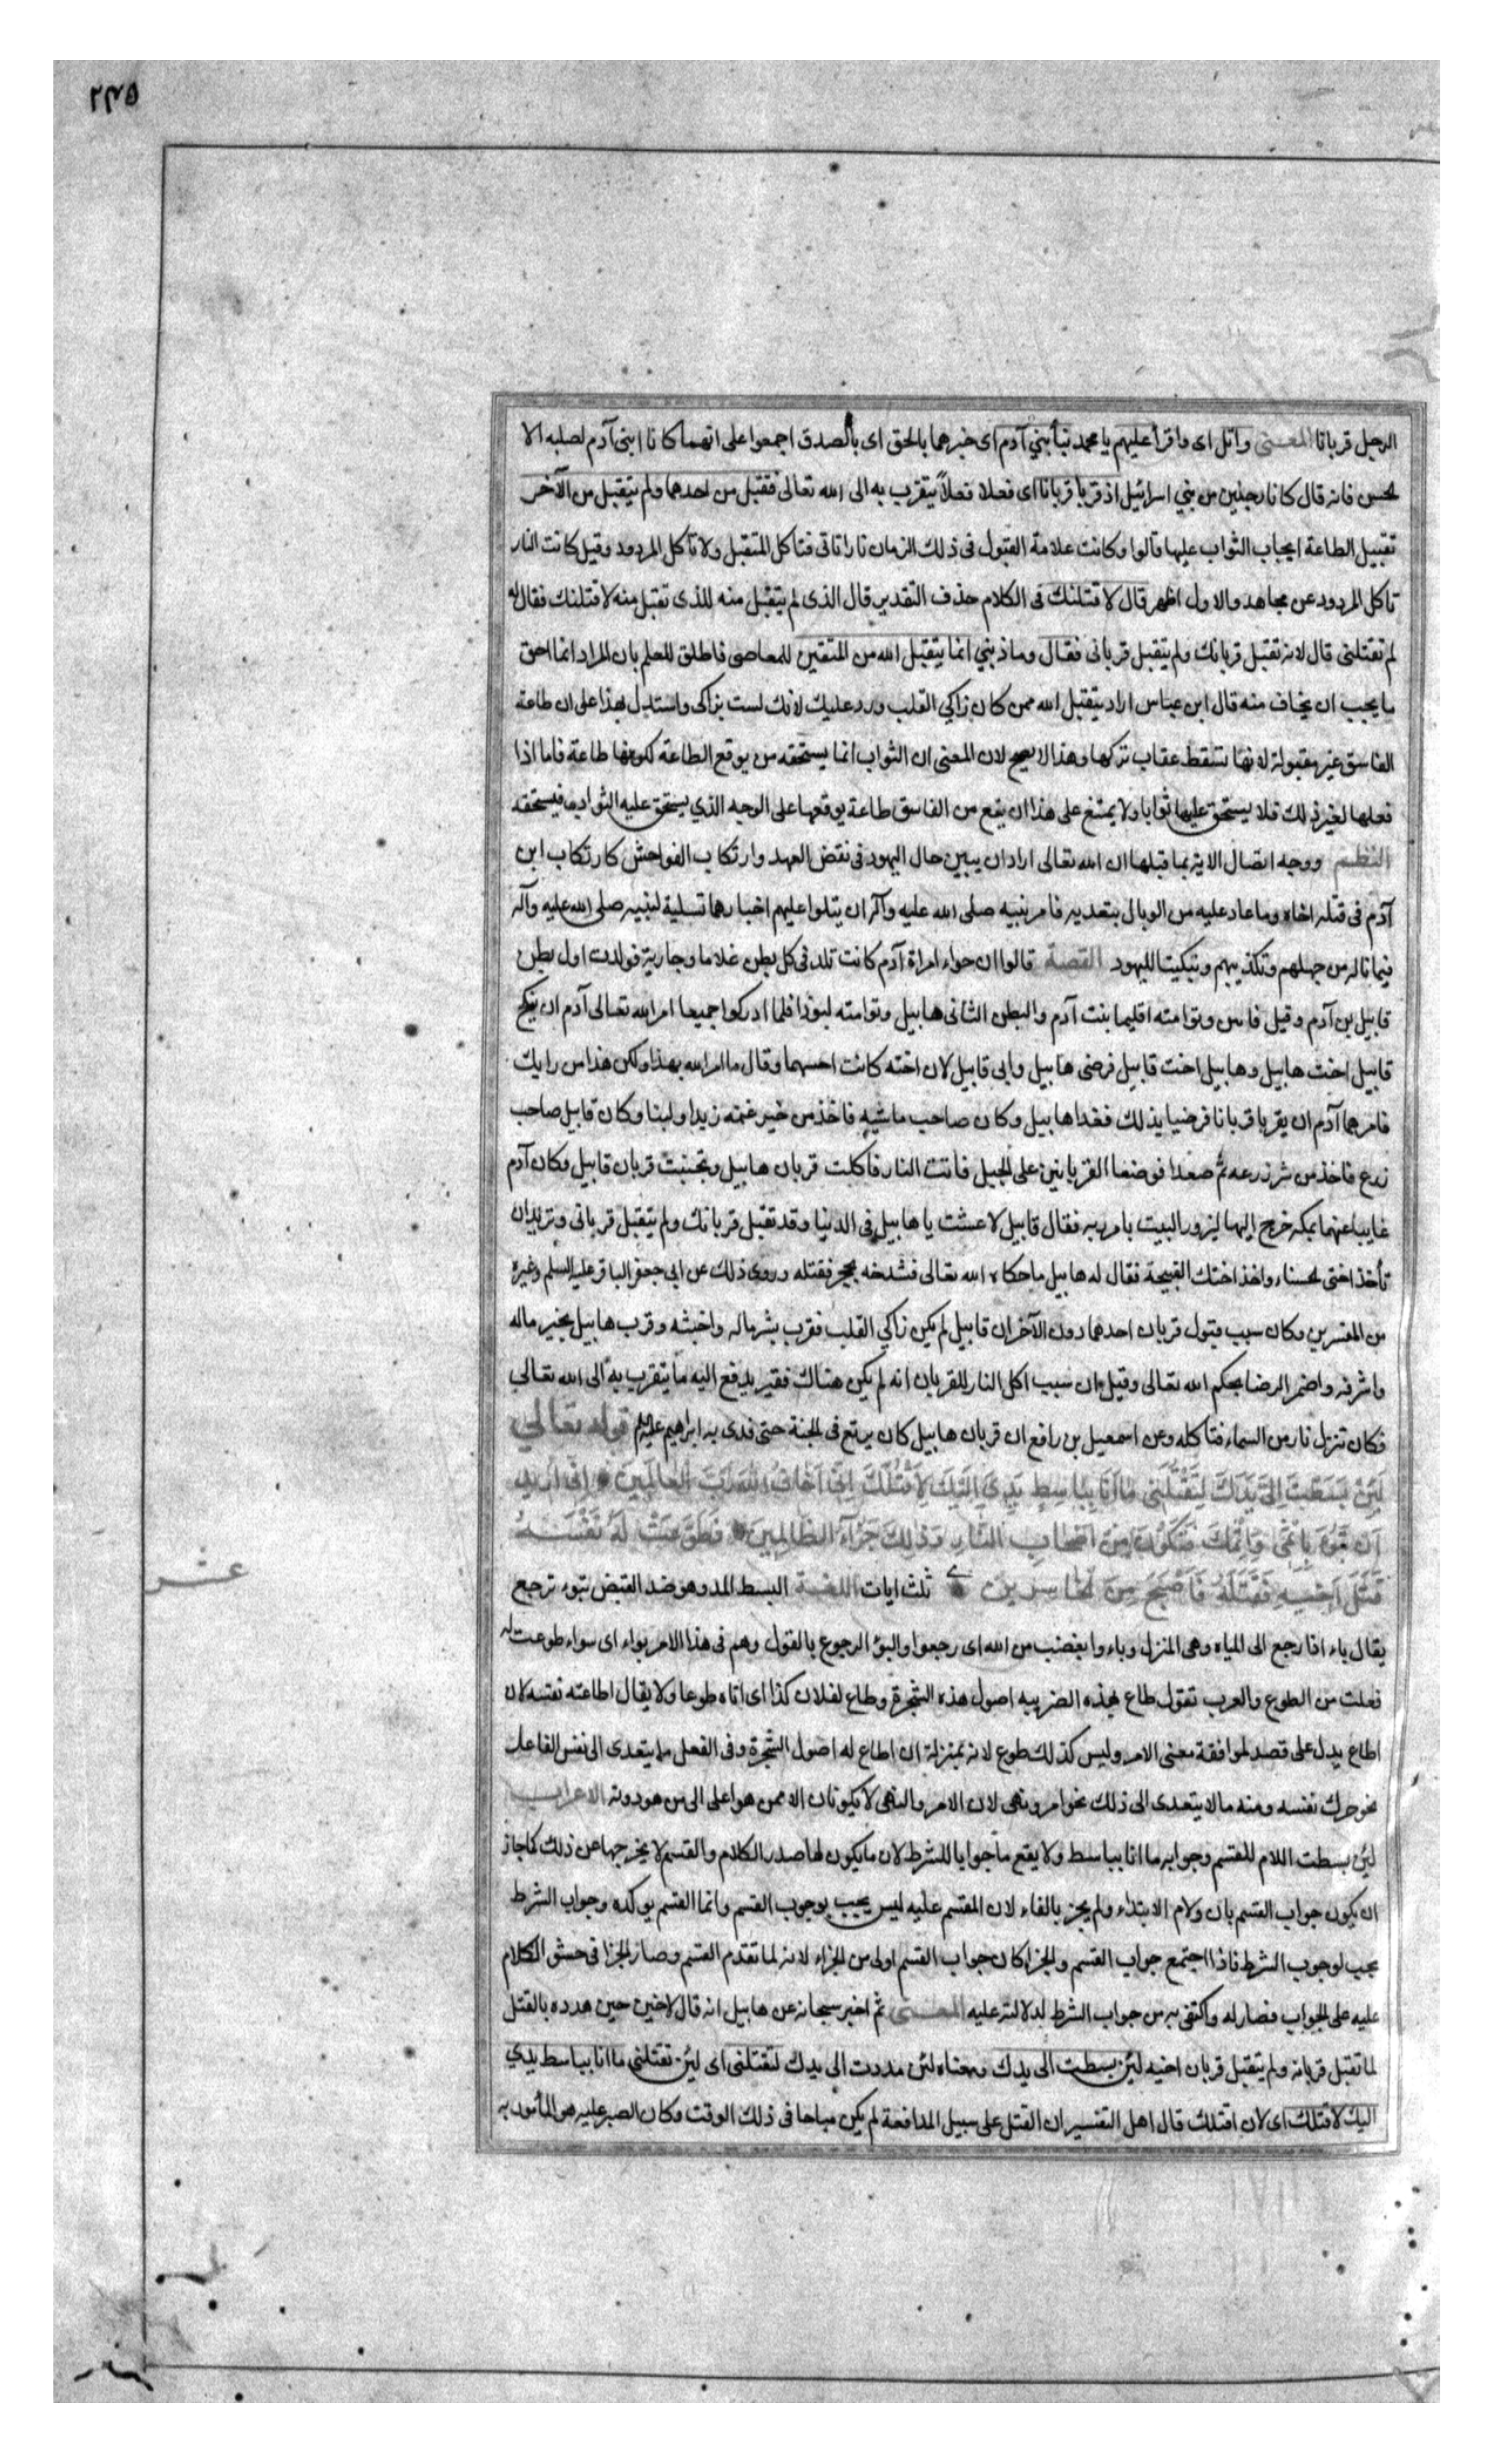 ٢٤٥
الرجل قربانا المعنى واتل اى واقرأ عليهم يا محمد نبأ ابني آدم اى خبرهما بالحق اى بالصدق اجمعوا على انهما كانا ابنى آدم لصلبه الا
لحسن فانه قال كانا رجلين من بني اسرائيل اذ قربا قربانا اى فعلا فعلاً يتقرب به الى الله تعالى فتقبل من احدهما ولم يتقبل من الآخر
تقبيل الطاعة ايجاب الثواب عليها قالوا وكانت علامة القبول فى ذلك الزمان نارا تاتى فتاكل المتقبل ولا تاكل المردود وقيل كانت النار
تاكل المردود عن مجاهد والاول اظهر قال لاقتلنك فى الكلام حذف التقدير قال الذى لم يتقبل منه للذى تقبل منه لاقتلنك فقال له
لم تقتلنى قال لانه تقبل قربانك ولم يتقبل قربانى فقال وما ذنبي انما يتقبل الله من المتقين للمعاصى فاطلق للعلم بان المراد انما احق
ما يجب ان يخاف منه قال ابن عباس اراد يتقبل الله ممن كان زاكي القلب ورد عليك لانك لست بزاكى واستدل بهذا على ان طاعة
الفاسق غير مقبولة لانها تسقط عقاب تركها وهذا لا يصح لان المعنى ان الثواب انما يستحقه من يوقع الطاعة لكونها طاعة فاما اذا
فعلها لغير ذلك فلا يستحق عليها ثوابا ولا يمتنع على هذا ان يقع من الفاسق طاعة يوقعها على الوجه الذي يستحق عليه الثواب فيستحقه
النظم ووجه اتصال الاية بما قبلها ان الله تعالى اراد ان يبين حال اليهود فى نقض العهد وارتكاب الفواحش كارتكاب ابن
آدم فى قتله اخاه وما عاد عليه من الوبال بتعديه فامر نبيه صلى الله عليه وآله ان يتلوا عليهم اخبارهما تسلية لنبيه صلى الله عليه وآله
فيما ناله من جهلهم وتكذيبهم وتبكيتا لليهود القصة قالوا ان حواء امراة آدم كانت تلد فى كل بطن غلاما وجارية فولدت اول بطن
قابيل بن آدم وقيل قاين وتوامته اقليما بنت آدم والبطن الثانى هابيل وتوامته ليوذا فلما ادركوا جميعا امر الله تعالى آدم ان ينكح
قابيل اخت هابيل وهابيل اخت قابيل فرضى هابيل وابى قابيل لان اخته كانت احسنهما وقال ما امر الله بهذا ولكن هذا من رايك
فامرهما آدم ان يقربا قربانا فرضيا بذلك فغدا هابيل وكان صاحب ماشية فاخذ من خير غنمه زبدا ولبنا وكان قابيل صاحب
زرع فاخذ من شر زرعه ثم صعدا فوضعا القربانين على الجبل فاتت النار فاكلت قربان هابيل وتجنبت قربان قابيل وكان آدم
غايبا عنهما بمكة خرج اليها ليزور البيت بامر ربه فقال قابيل لا عشت يا هابيل فى الدنيا وقد تقبل قربانك ولم يتقبل قربانى وتريد ان
تأخذ اختى لحسناء واخذ اختك القبيحة فقال له هابيل ما حكاه الله تعالى فشدخه بحجر فقتله وروى ذلك عن ابى جعفر الباقر عليه السلم وغيره
من المفسرين وكان سبب قبول قربان احدهما دون الآخر ان قابيل لم يكن زاكي القلب فقرب بشر ماله واخبثه وقرب هابيل بخير ماله
واشرفه واضمر الرضا بحكم الله تعالى وقيل ان سبب اكل النار للقربان انه لم يكن هناك فقير يدفع اليه ما يتقرب به الى الله تعالى
فكان تنزل نار من السماء فتاكله وعن اسمعيل بن رافع ان قربان هابيل كان يرتع فى لجنة حتى فدى به ابراهيم عليه قوله تعالي
لَئِنْ بَسَطْتَ اِلَيَّ يَدَكَ لِتَقْتُلَنى مَا اَنَا بِبَاسِطٍ يَدِيَ اِلَيْكَ لِاَقْتُلَكَ اِنّى اَخَافُ اللهَ رَبَّ العَالَمِينَ اِنّى اُرِيدُ
اَنْ تَبُوءَ بِاِثْمى وَاِثْمِكَ فَتَكُونَ مِنْ اَصْحَابِ النَّارِ وَذٰلِكَ جَزَآءُ الظَّالِمِينَ فَطَوَّعَتْ لَهُ نَفْسُهُ
قَتْلَ اَخيهِ فَقَتَلَهُ فَاَصْبَحَ مِنَ لخَاسِرِينَ ثلث ايات اللغة البسط المد وهو ضد القبض تبوء ترجع
عشر
يقال باء اذا رجع الى المياه وهى المنزل وباءوا بغضب من الله اى رجعوا والبوء الرجوع بالقول وهم فى هذا الامر بواء اى سواء طوعت له
فعلت من الطوع والعرب تقول طاع لهذه الضريبه اصول هذه الشجرة وطاع لفلان كذا اى اتاه طوعا ولا يقال اطاعته نفسه لان
اطاع يدل على قصد لموافقة معنى الامر وليس كذلك طوع لانه بمنزلة ان اطاع له اصول الشجرة وفى الفعل ما يتعدى الى نفس الفاعل
نحو حرك نفسه ومنه ما لا يتعدى الى ذلك نحو امر ونهى لان الامر والنهى لا يكونان الا ممن هو اعلى الى من هو دونه الاعراب
لئن بسطت اللام للقسم وجوابه ما انا بباسط ولا يقع ما جوابا للشرط لان ما يكون لها صدر الكلام والقسم لا يخرجها عن ذلك كما جاز
ان يكون جواب القسم بان ولام الابتداء ولم يجز بالفاء لان المقسم عليه ليس يجب بوجوب القسم وانما القسم يوكده وجواب الشرط
يجب لوجوب الشرط فاذا اجتمع جواب القسم والجزا كان جواب القسم اولى من الجزاء لانه لما تقدم القسم وصار الجزا فى حشو الكلام
عليه على لجواب فصار له واكتفى به من جواب الشرط لدلالته عليه المعنى ثم اخبر سبحانه عن هابيل انه قال لاخيه حين هدده بالقتل
لما تقبل قربانه ولم يتقبل قربان اخيه لئن بسطت الى يدك ومعناه لئن مددت الى يدك لتقتلنى اى لئن تقتلنى ما انا بباسط يدي
اليك لاقتلك اى لان اقتلك قال اهل التفسير ان القتل على سبيل المدافعة لم يكن مباحا فى ذلك الوقت وكان الصبر عليه هو المأمور به